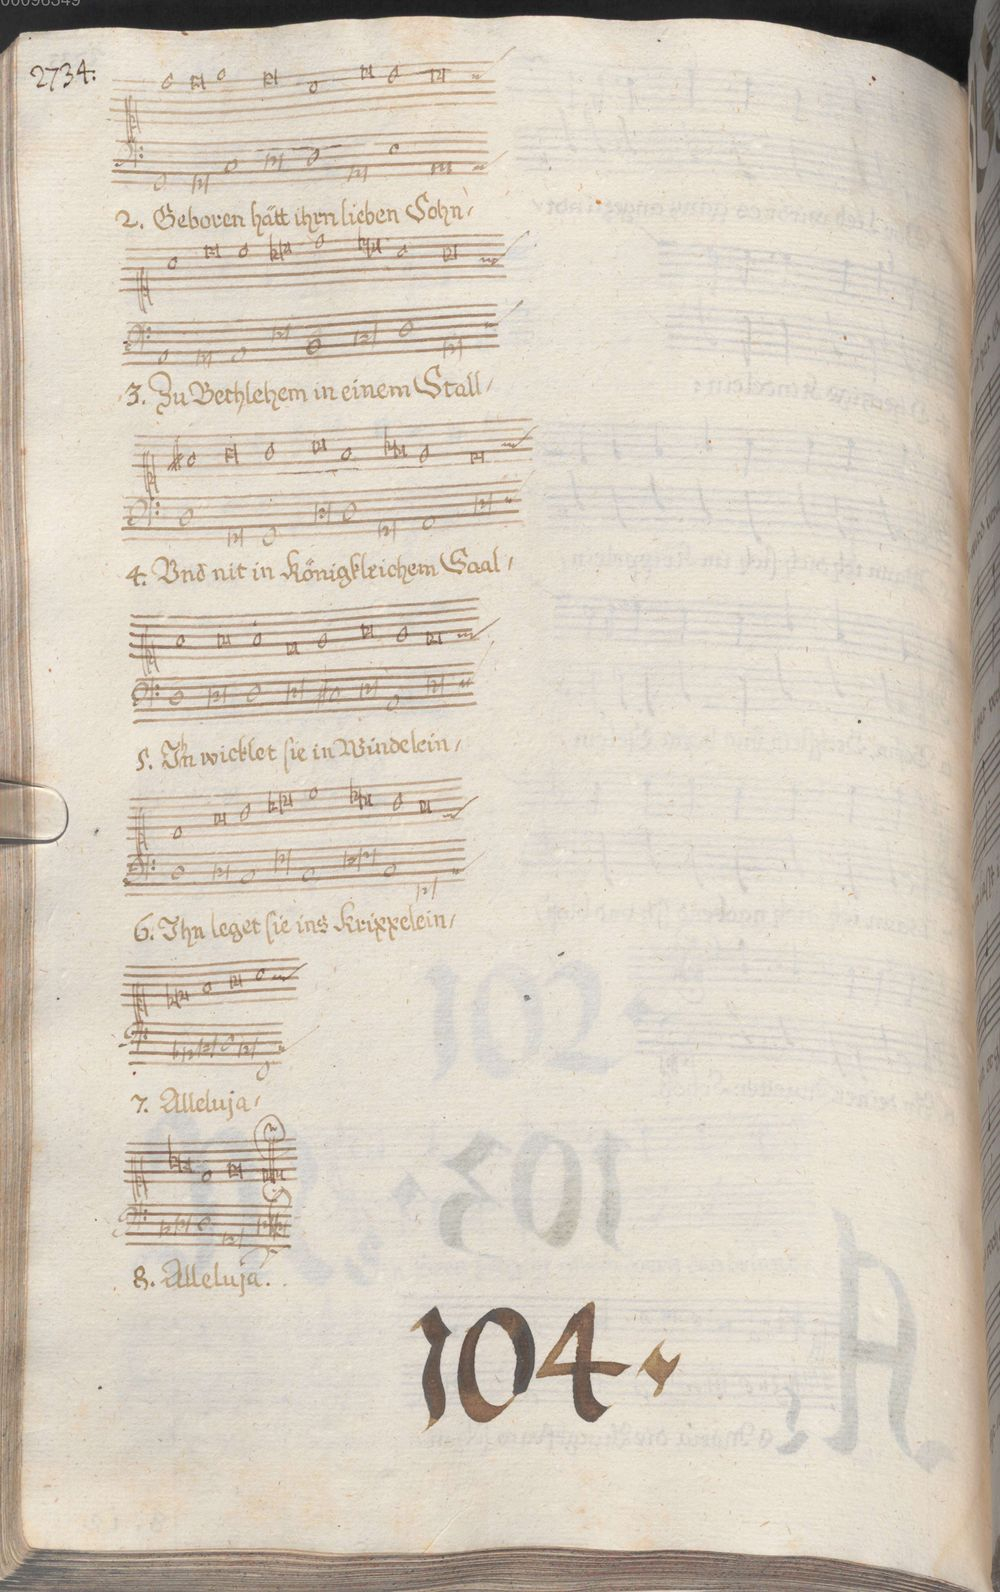 2734.
2. Geboren hätt ihrn lieben Sohn,
3. Zu Bethlehem in einem Stall,
4. Vnd nit in Königkleichem Saal,
5. Ihn wicklet sie in Windelein,
6. Ihn leget sie ins Krippelein,
7. Alleluja,
8. Alleluja.
104.